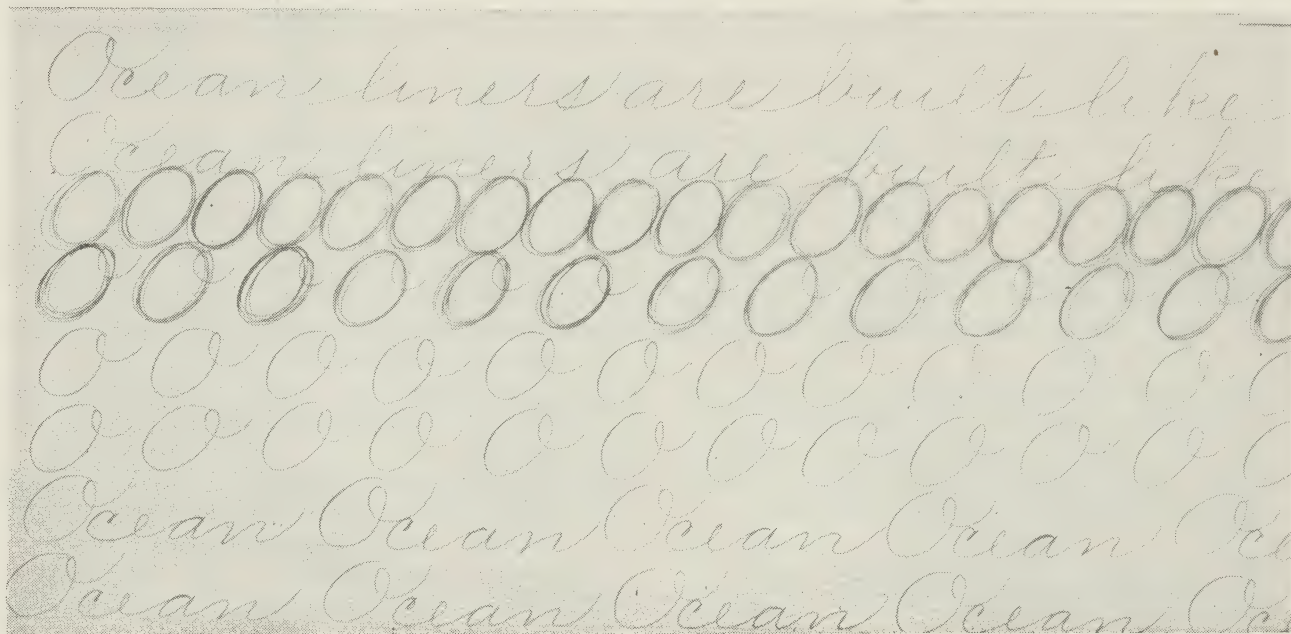 Ocean liners are built like
Ocean liners are built like
O O O O O O O O O O O O
O O O O O O O O O O O O
O O O O O O O O O O O O
Ocean Ocean Ocean Ocean Oce
Ocean Ocean Ocean Ocean Oc